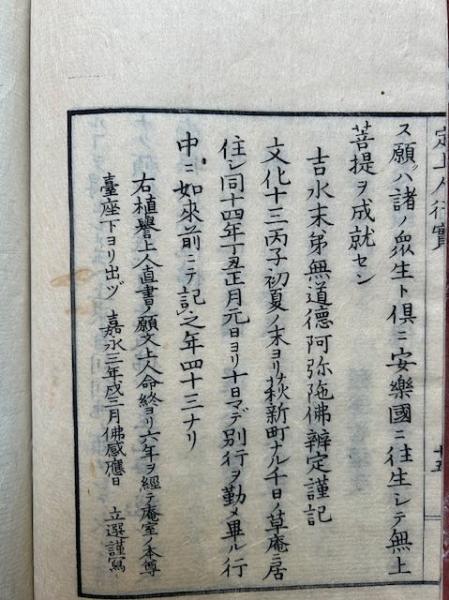 定上人行實
十五
ス願ハ諸ノ衆生ト倶ニ安樂國ニ往生シテ無上
菩提ヲ成就セン
吉水末弟無道德阿弥陁佛辨定謹記
文化十三丙子初夏ノ末ヨリ萩新町ナル千日ノ草庵ニ居
住シ同十四年丁丑正月元日ヨリ十日マデ別行ヲ勤メ畢ル行
中ニ如來前ニテ記之年四十三ナリ
右植譽上人直書ノ願文上人命終ヨリ六年ヲ經テ庵室ノ本尊
臺座下ヨリ出ヅ 嘉永三年戌三月佛感應日 立選謹寫